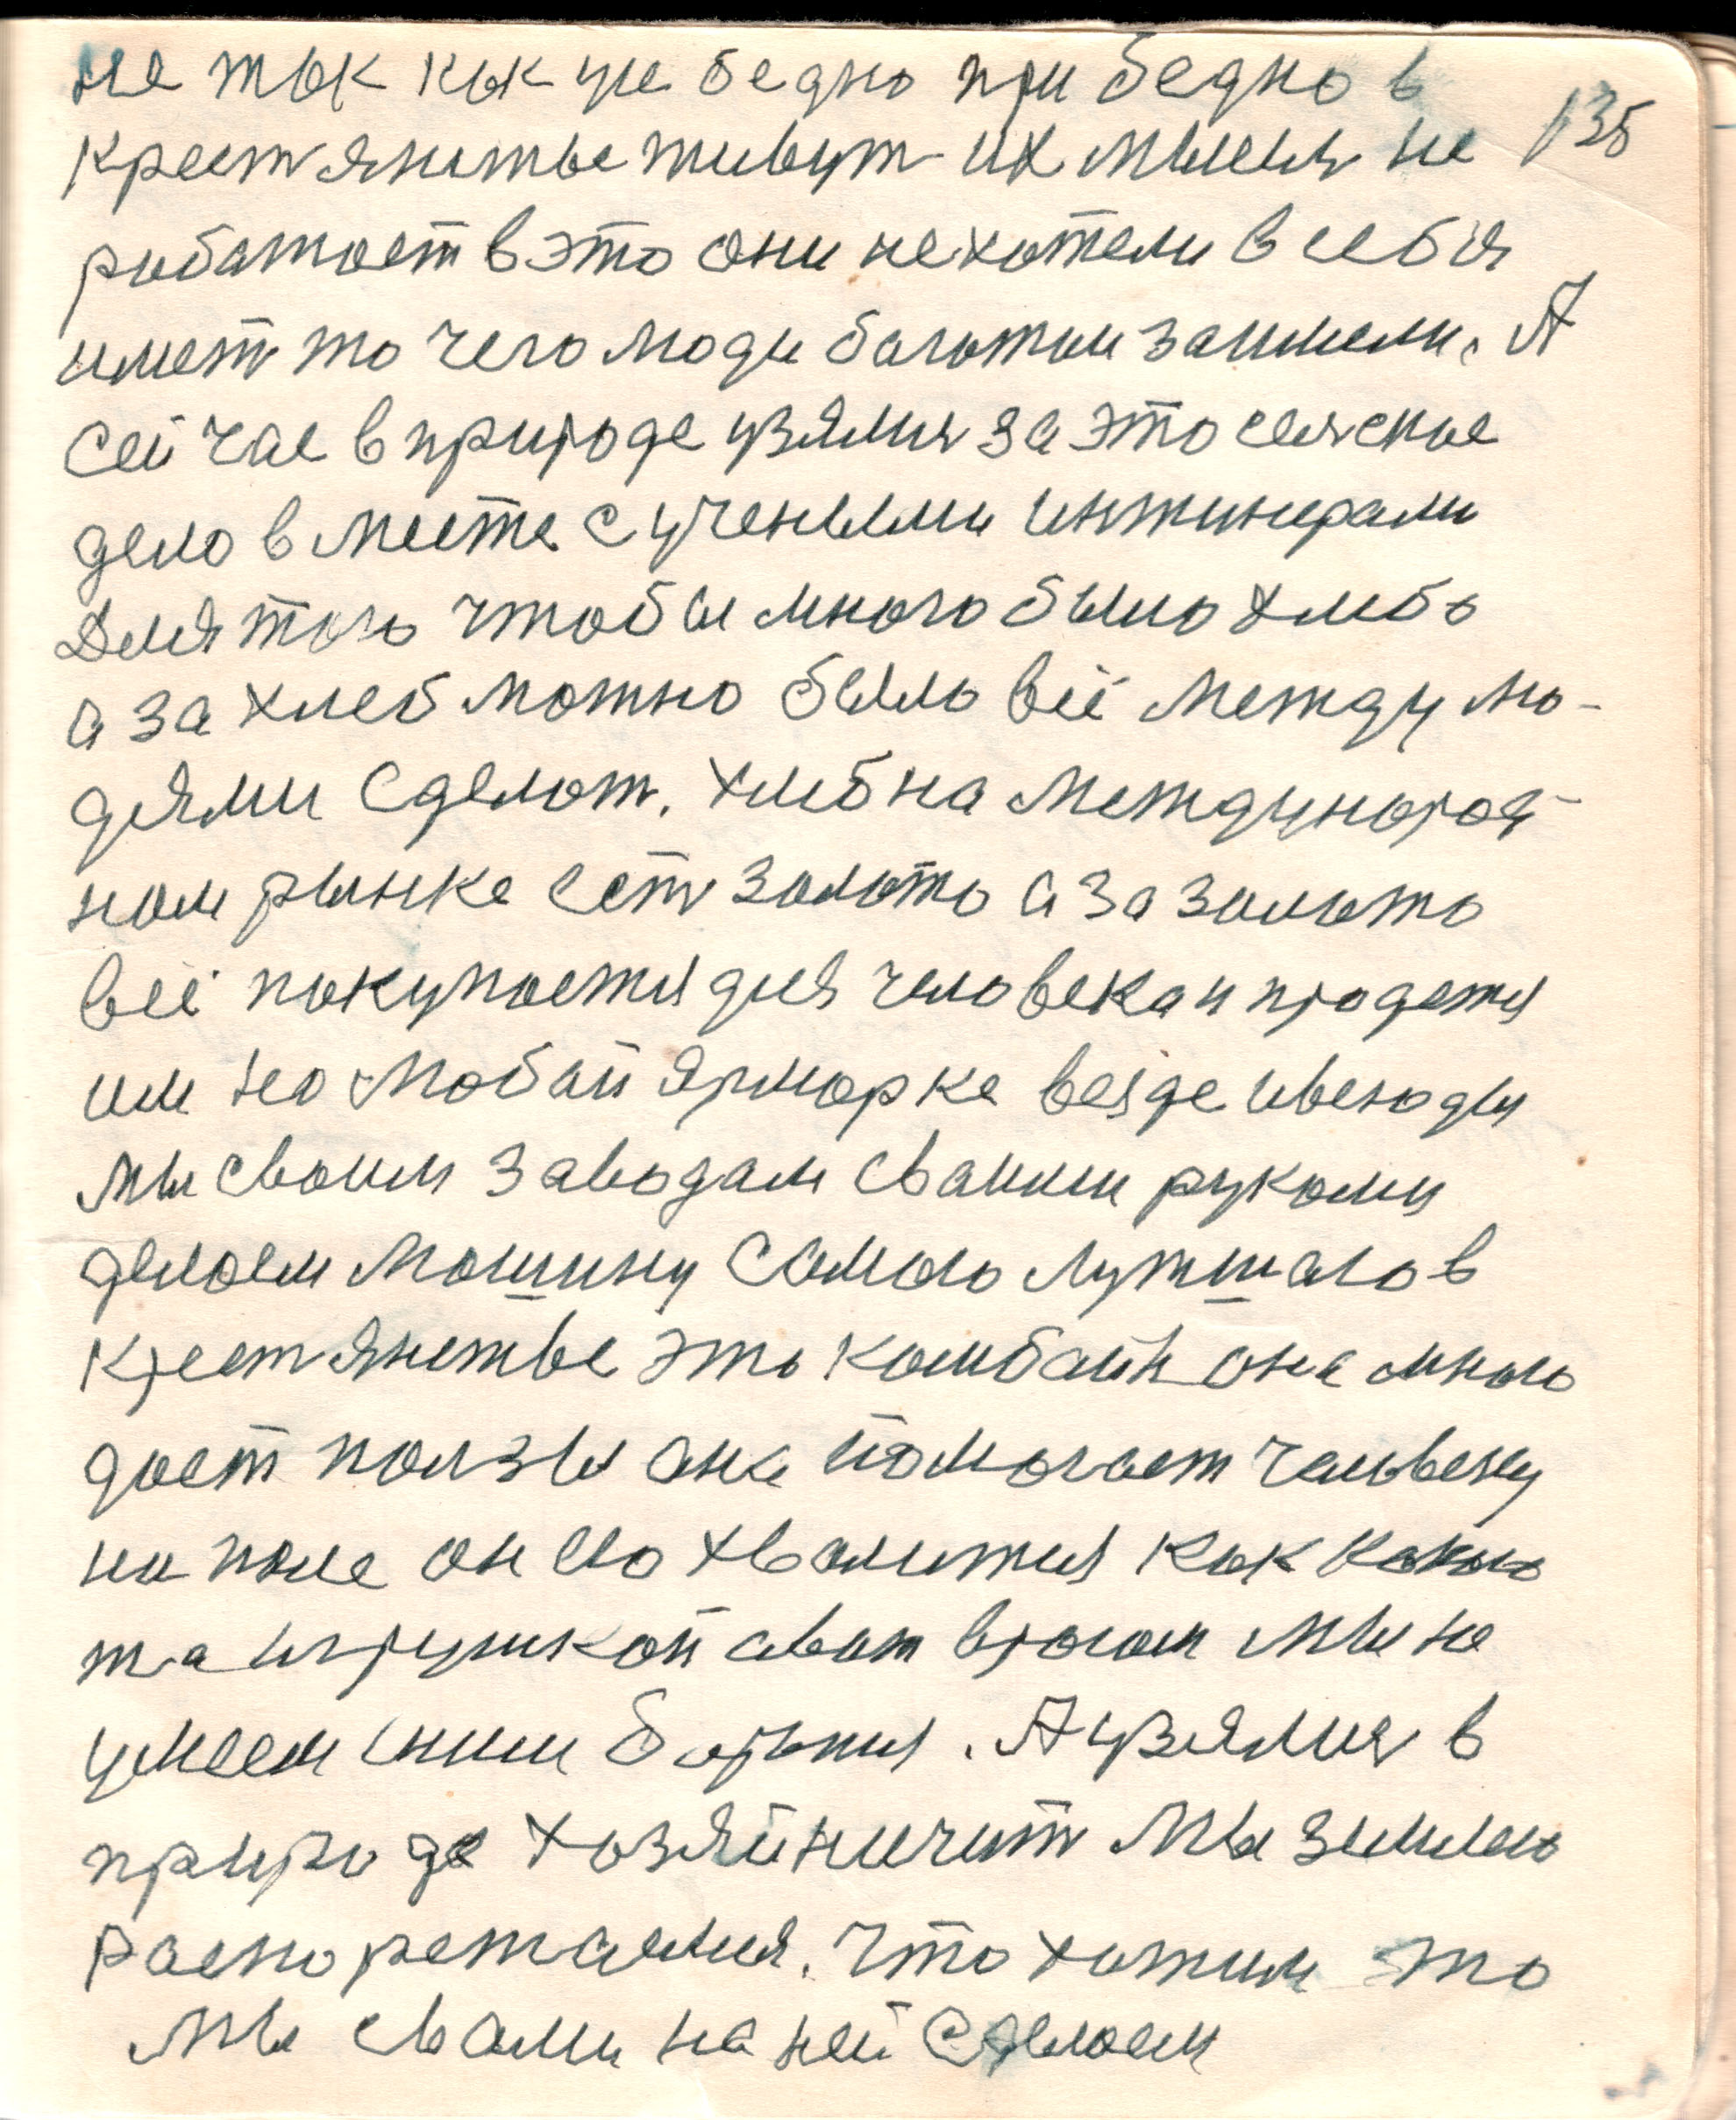 не так как уне бедно при бедно в
135
крестянстве живут их мысля не
работает в это они не хотели в себя
имет то чего люди багатии заимели. А
сей час в природе узялися за это селское
дело вместе с учеными инжинерами
Для того чтобы много было хлеба
а за хлеб можно было всё между лю-
дями сделат. Хлеб на международ-
ном рынке ест золото а за золото
всё покупается для человека и продется
им на любой ярмарке везде и всюды
мы своим заводам своими руками
делаем машину самаго лутшаго в
крестянстве это комбайн она много
дает ползы она помогает человеку
на поле он ею хвалится как какою
та игрушкой а вот врагом мы не
умеем сними боротся. А узялися в
природе хозяйничит мы землею
распоряжаемся. Что хотим то
мы с вами на ней сделаем